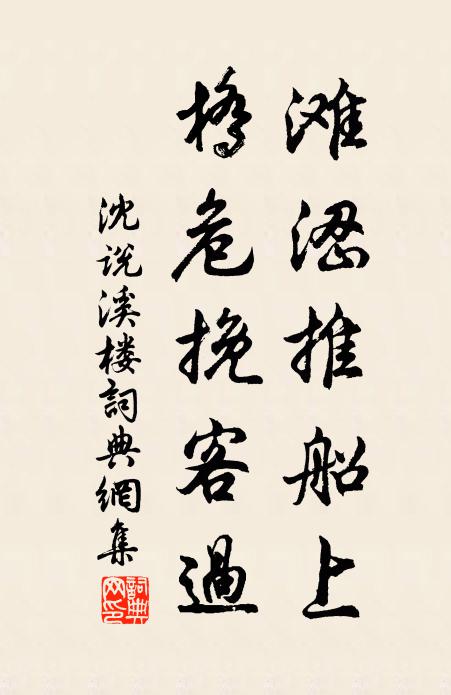 滩涩推船上
橋危挽客過
沈说溪楼詞典網集
詞典网印